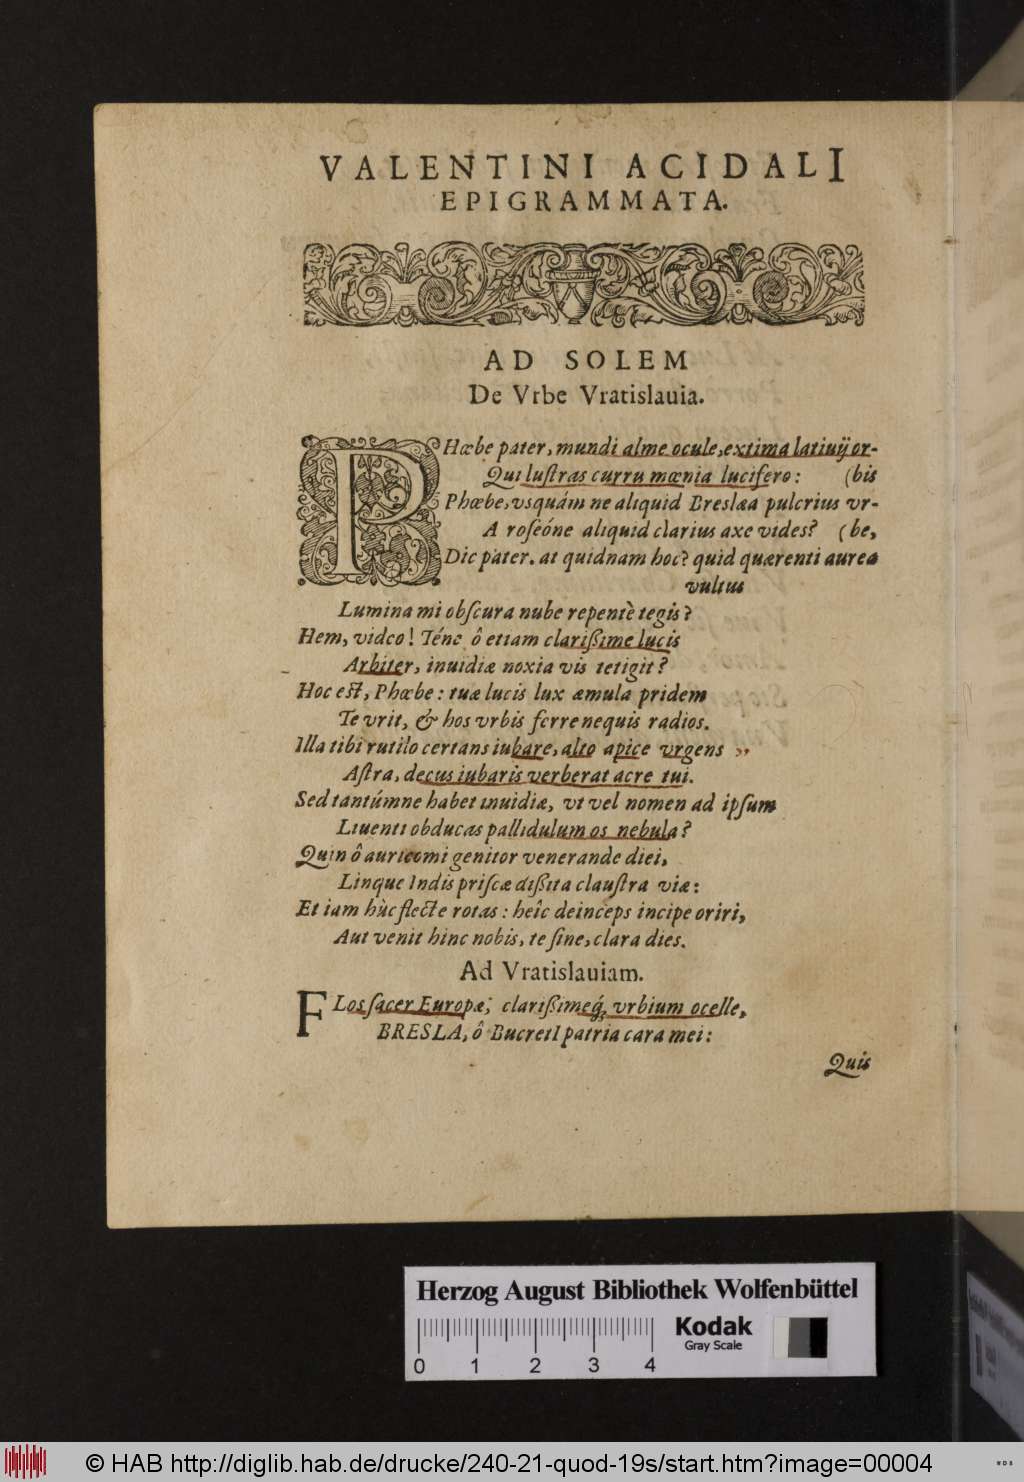 VALENTINI ACIDALI
EPIGRAMMATA.
AD SOLEM
De Vrbe Vratislauia.
PHœbe pater, mundi alme ocule, extima latiuij or-
Qui luſtras curru mœnia lucifero: (bis
Phœbe, vsquám ne aliquid Breslæa pulcrius vr-
A roſeóne aliquid clarius axe vides? (be,
Dic pater. at quidnam hoc? quid quærenti aurea
vultus
Lumina mi obſcura nube repentè tegis?
Hem, video! Téne ô etiam clarißime lucis
Arbiter, inuidiæ noxia vis tetigit?
Hoc est, Phœbe: tuæ lucis lux æmula pridem
Te vrit, & hos vrbis ferre nequis radios.
Illa tibi rutilo certans iubare, alto apice vrgens „
Aſtra, decus iubaris verberat acre tui.
Sed tantúmne habet inuidiæ, vt vel nomen ad ipſum
Liuenti obducas pallidulum os nebula?
Quin ô auricomi genitor venerande diei,
Linque Indis priſcæ dißita clauſtra viæ:
Et iam hùc flecte rotas: heîc deinceps incipe oriri,
Aut venit hinc nobis, te ſine, clara dies.
Ad Vratislauiam.
FLos ſacer Europæ, clarißimeq́, vrbium ocelle,
BRESLA, ô Bucretî patria cara mei:
Quis
Herzog August Bibliothek Wolfenbüttel
Kodak
Gray Scale
0 1 2 3 4
© HAB http://diglib.hab.de/drucke/240-21-quod-19s/start.htm?image=00004